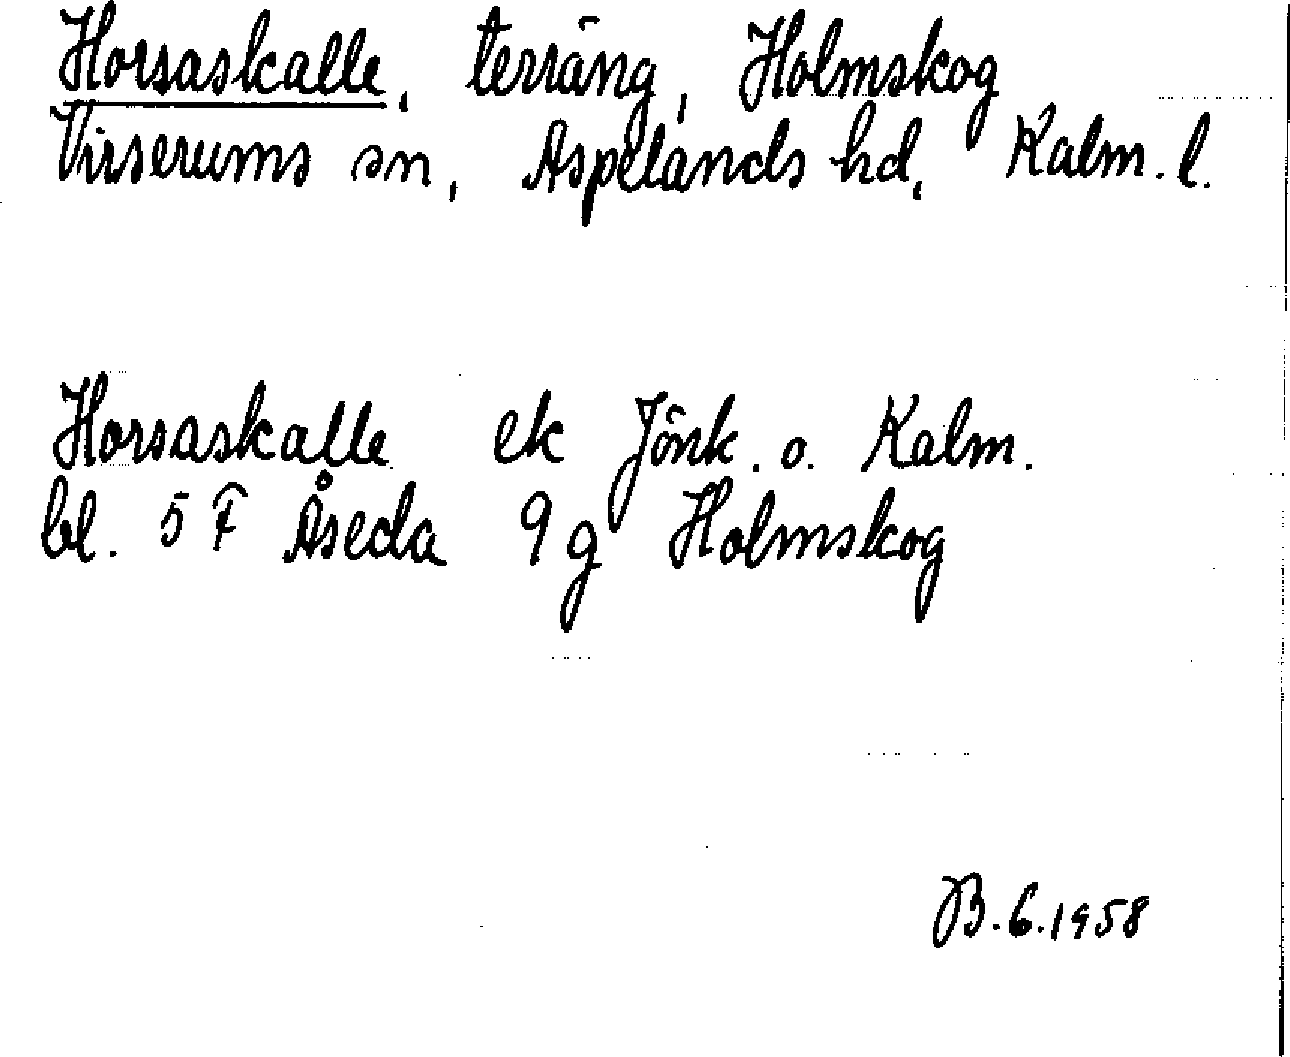 Horsaskalle, terräng, Holmskog
Virserums sn, Aspelands hd, Kalm. l.
Horsaskalle ek Jönk. o. Kalm.
bl. 5 F Åseda 9 g Holmskog
B. 6. 1958